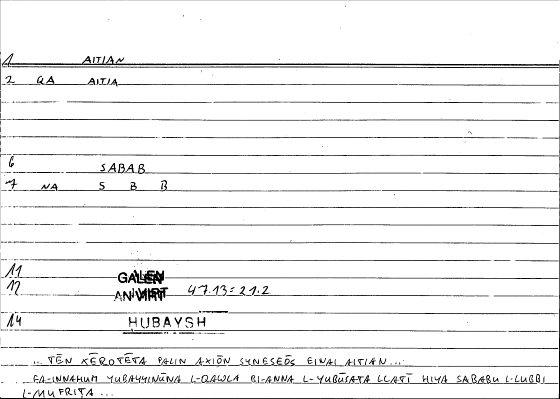 1 AITIAN
2 QA AITIA
6 SABAB
7 NA S B B
11 GALEN
12 AN VIRT 47.13 = 21.2
14 HUBAYSH
... TĒN XĒROTĒTA PALIN AXIŌN SYNESEŌS EINAI AITIAN...
FA-INNAHUM YUBAYYINŪNA L-QAWLA BI-ANNA L-YUBŪSATA LLATĪ HIYA SABABU L-LUBBI
L-MUFRIṬA ...